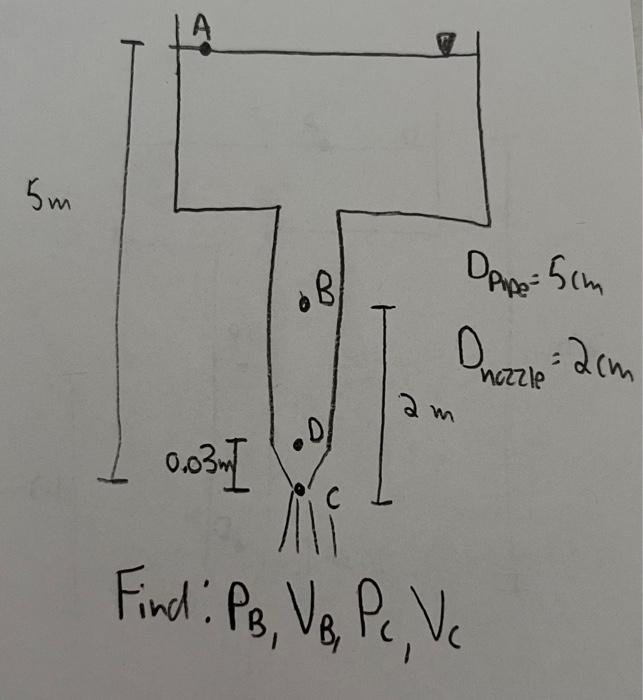 A
5m
B
D_pipe = 5cm
D_nozzle = 2cm
2 m
D
0.03m
C
Find: P_B, V_B, P_C, V_C